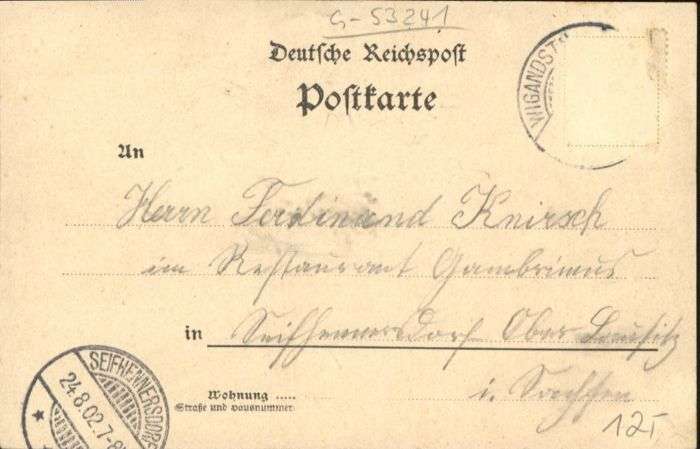 G-53241
Deutsche Reichspost
Postkarte
WIGANDST
An
Herrn Ferdinand Knirsch
im Restaurant Gambrinus
in Seifhennersdorf Ober Lausitz
i. Sachsen
Wohnung .....
Straße und Hausnummer
SEIFHENNERSDORF
24.8.02.7-8
12,-